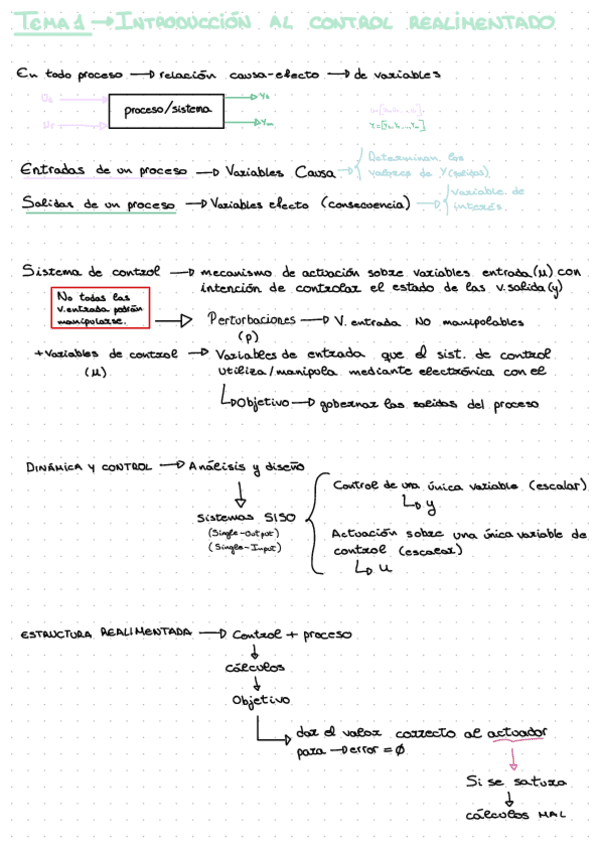 TEMA 1 → INTRODUCCIÓN AL CONTROL REALIMENTADO
En todo proceso → relación causa-efecto → de variables
proceso/sistema
Y=[y₁,y₂,...,yₘ]
Entradas de un proceso → Variables Causa → { Determinan los
valores de Y (salidas)
Salidas de un proceso → Variables efecto (consecuencia) → { Variable de
interés.
Sistema de control → mecanismo de actuación sobre variables entrada (u) con
intención de controlar el estado de las v. salida (y)
No todas las
v. entrada podrán
manipularse.
→ Perturbaciones → V. entrada NO manipolables
(p)
+ Variables de control → Variables de entrada que el sist. de control
(u) utiliza/manipula mediante electrónica con el
↳ Objetivo → gobernar las salidas del proceso
DINÁMICA Y CONTROL → Análisis y diseño
↓
Sistemas SISO
(Single-Output)
(Single-Input)
Control de una única variable (escalar)
↳ y
Actuación sobre una única variable de
control (escalar)
↳ u
ESTRUCTURA REALIMENTADA → Control + proceso
↓
cálculos
↓
Objetivo
↳ dar el valor correcto al actuador
para → error = Ø
↓
Si se satura
↓
cálculos MAL